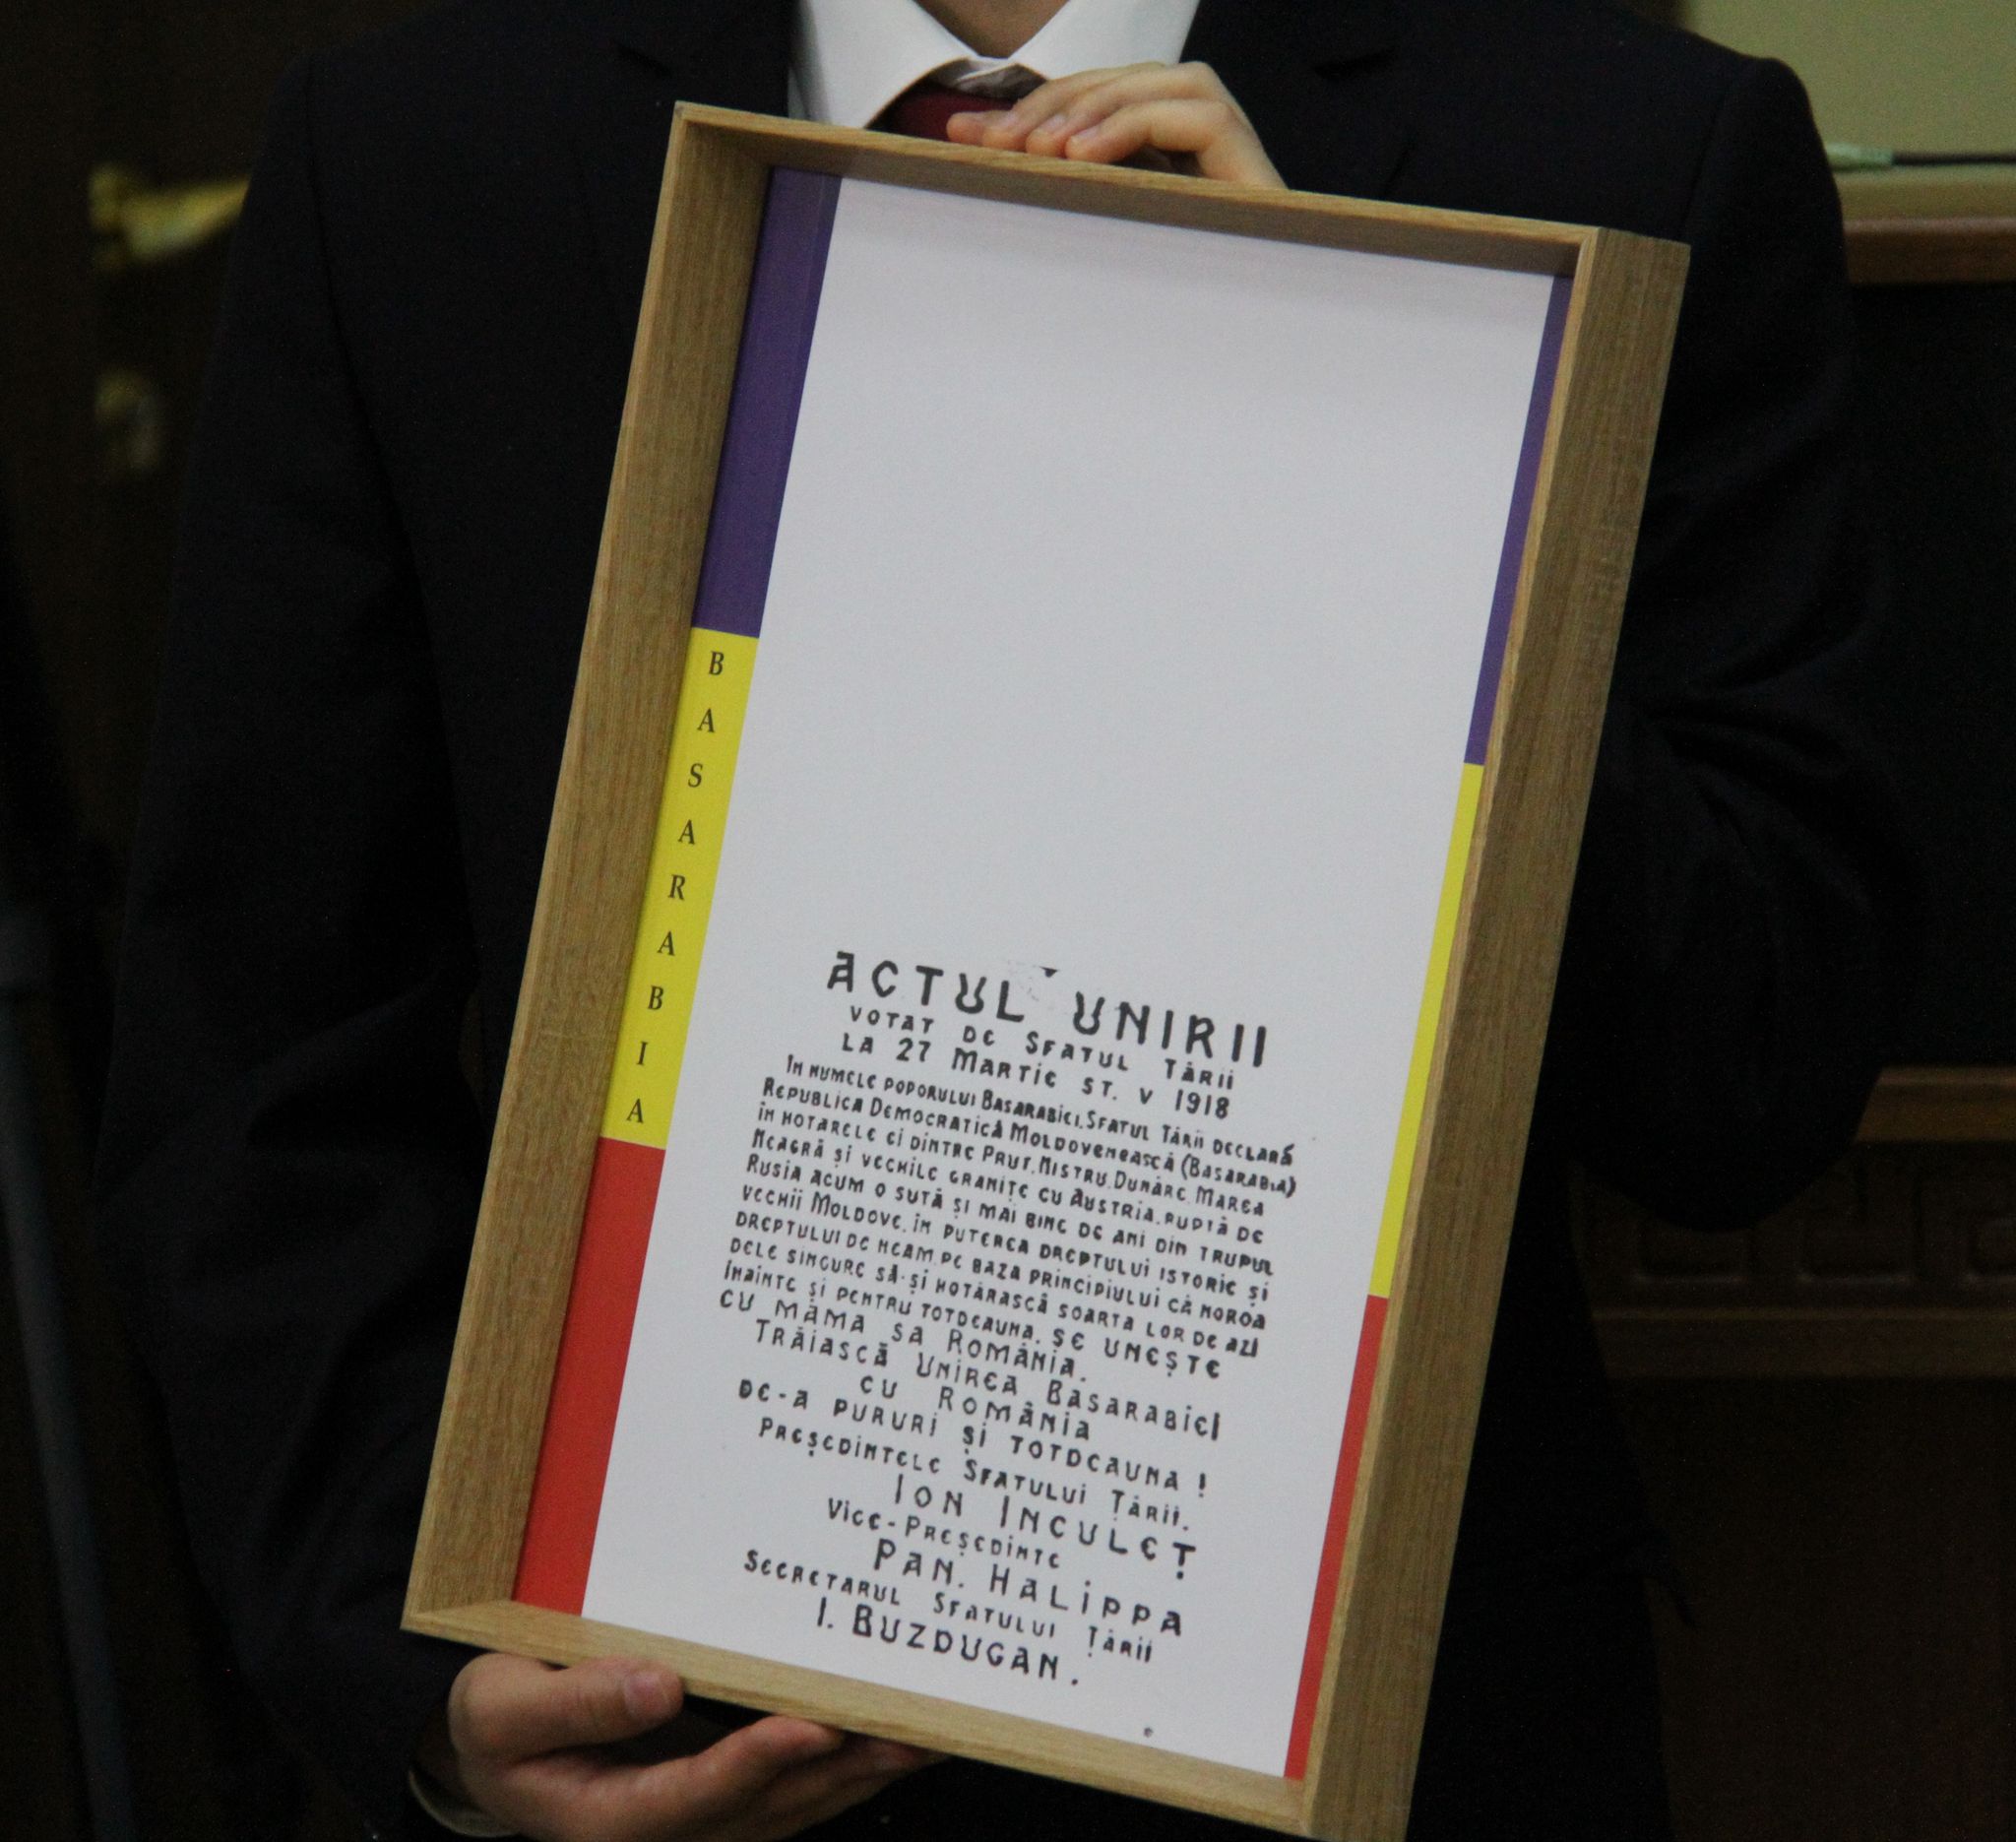 BASARABIA
ACTUL UNIRII
VOTAT DE SFATUL ȚĂRII
LA 27 MARTIE ST. V 1918
În numele poporului Basarabiei, Sfatul Țării declară
Republica Democratică Moldovenească (Basarabia)
în hotarele ei dintre Prut, Nistru, Dunăre, Marea
Neagră și vechile graniţe cu Austria, ruptă de
Rusia acum o sută și mai bine de ani din trupul
vechii Moldove, în puterea dreptului istoric și
dreptului de neam, pe baza principiului că noroa
dele singure să-și hotărască soarta lor de azi
înainte și pentru totdeauna, SE UNEȘTE
CU MAMA SA ROMÂNIA.
TRĂIASCĂ UNIREA BASARABIEI
CU ROMÂNIA
DE-A PURURI ȘI TOTDEAUNA!
Președintele Sfatului Țării,
ION INCULEȚ
Vice-Președinte
PAN. HALIPPA
Secretarul Sfatului Țării
I. BUZDUGAN.